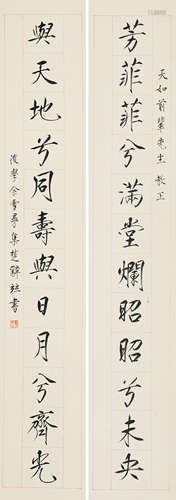 天如前輩先生教正
芳菲菲兮滿堂爛昭昭兮未央
與天地兮同壽與日月兮齊光
後學余雪曼集楚辭並書